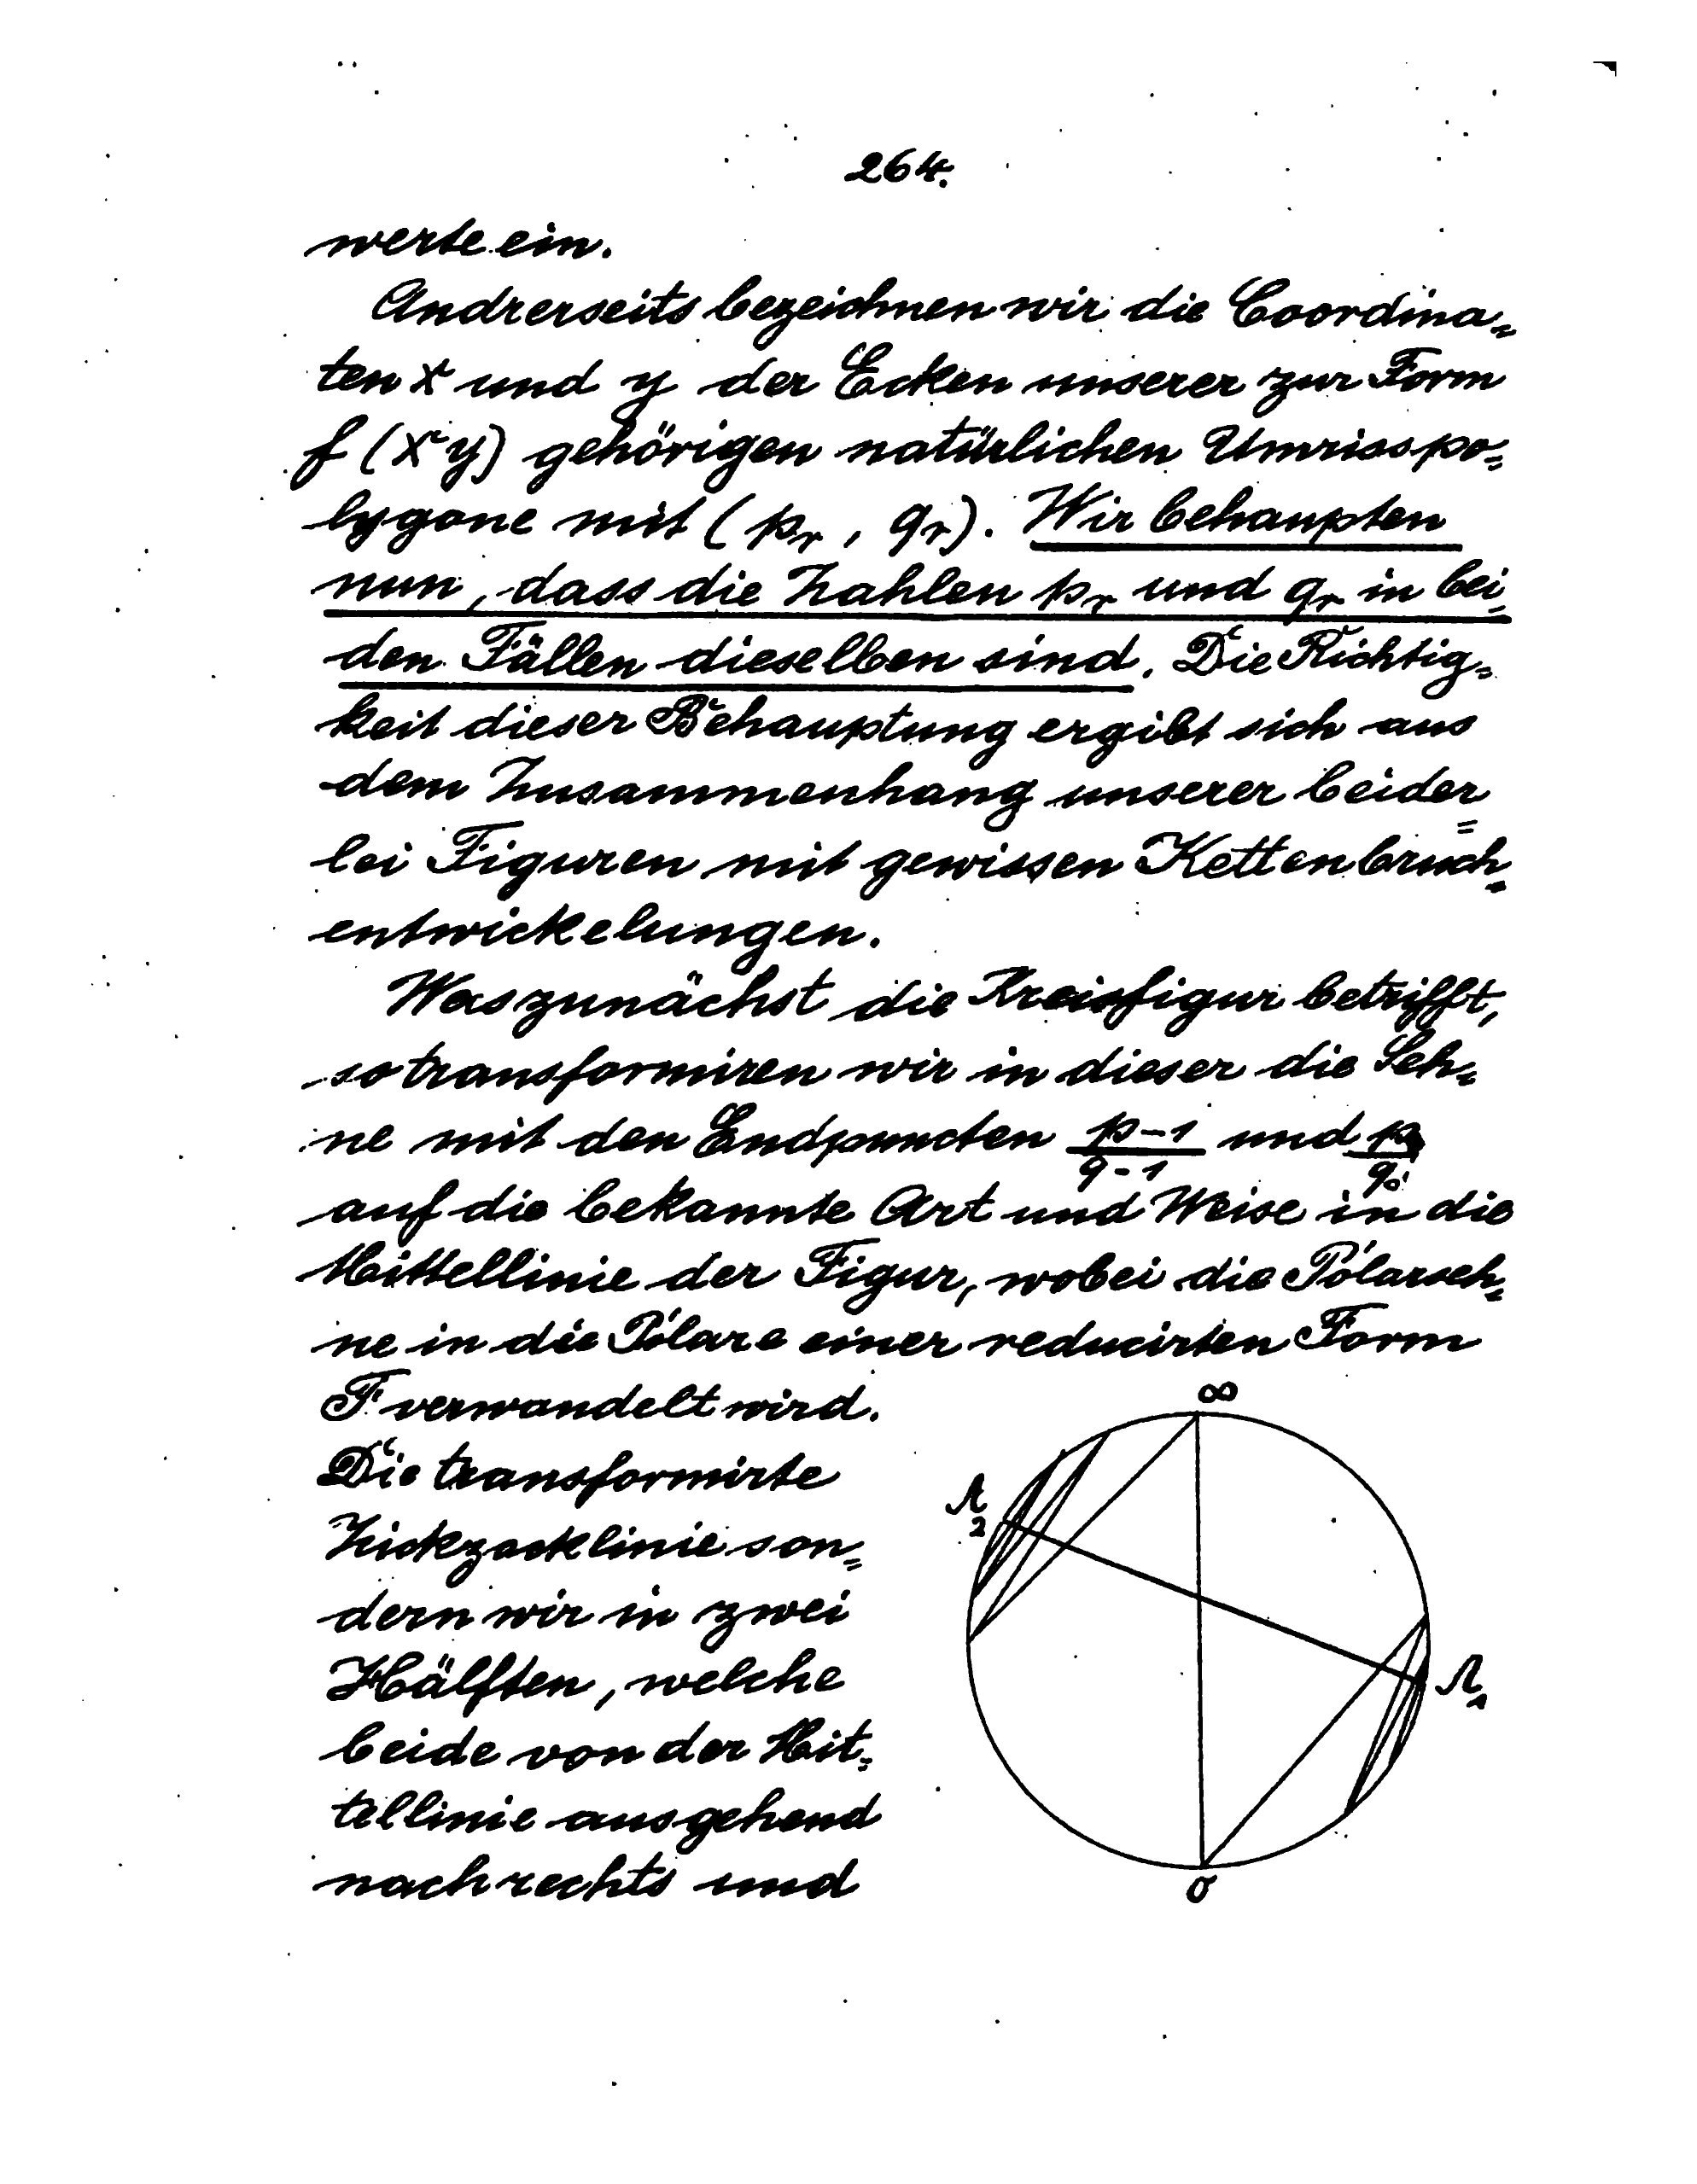 264.
werte ein.
Andrerseits bezeichnen wir die Coordina=
ten x und y der Ecken unserer zur Form
f (x y) gehörigen natürlichen Umrisspo=
lygone mit (pᵣ, qᵣ). Wir behaupten
nun, dass die Zahlen pᵣ und qᵣ in bei=
den Fällen dieselben sind. Die Richtig=
keit dieser Behauptung ergibt sich aus
dem Zusammenhang unserer beider=
lei Figuren mit gewissen Kettenbruch=
entwickelungen.
Was zunächst die Kreisfigur betrifft,
so transformiren wir in dieser die Seh=
ne mit den Endpuncten p-1/q-1 und p₀/q₀
auf die bekannte Art und Weise in die
Mittellinie der Figur, wobei die Polarseh=
ne in die Polare einer reducirten Form
F verwandelt wird.
Die transformirte
Zickzacklinie son=
dern wir in zwei
Hälften, welche
beide von der Mit=
tellinie ausgehend
nach rechts und
∞
Λ₂
Λ₁
0